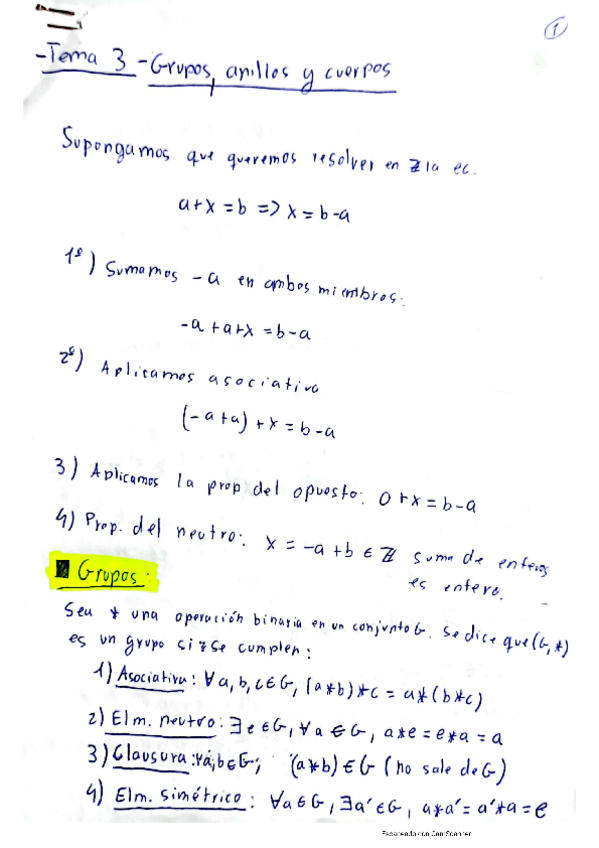 1
-Tema 3 - Grupos, anillos y cuerpos
Supongamos que queremos resolver en ℤ la ec.
a+x=b => x=b-a
1º) Sumamos -a en ambos miembros:
-a+a+x=b-a
2º) Aplicamos asociativa
(-a+a)+x=b-a
3) Aplicamos la prop del opuesto: 0+x=b-a
4) Prop. del neutro: x=-a+b∈ℤ suma de enteros
es entero.
Grupos:
Sea * una operación binaria en un conjunto G. Se dice que (G,*)
es un grupo si se cumplen:
1) Asociativa: ∀a,b,c∈G, (a*b)*c = a*(b*c)
2) Elm. neutro: ∃e∈G, ∀a∈G, a*e=e*a=a
3) Clausura: ∀a,b∈G; (a*b)∈G (no sale de G)
4) Elm. simétrico: ∀a∈G, ∃a'∈G, a*a'=a'*a=e
Escaneado con CamScanner